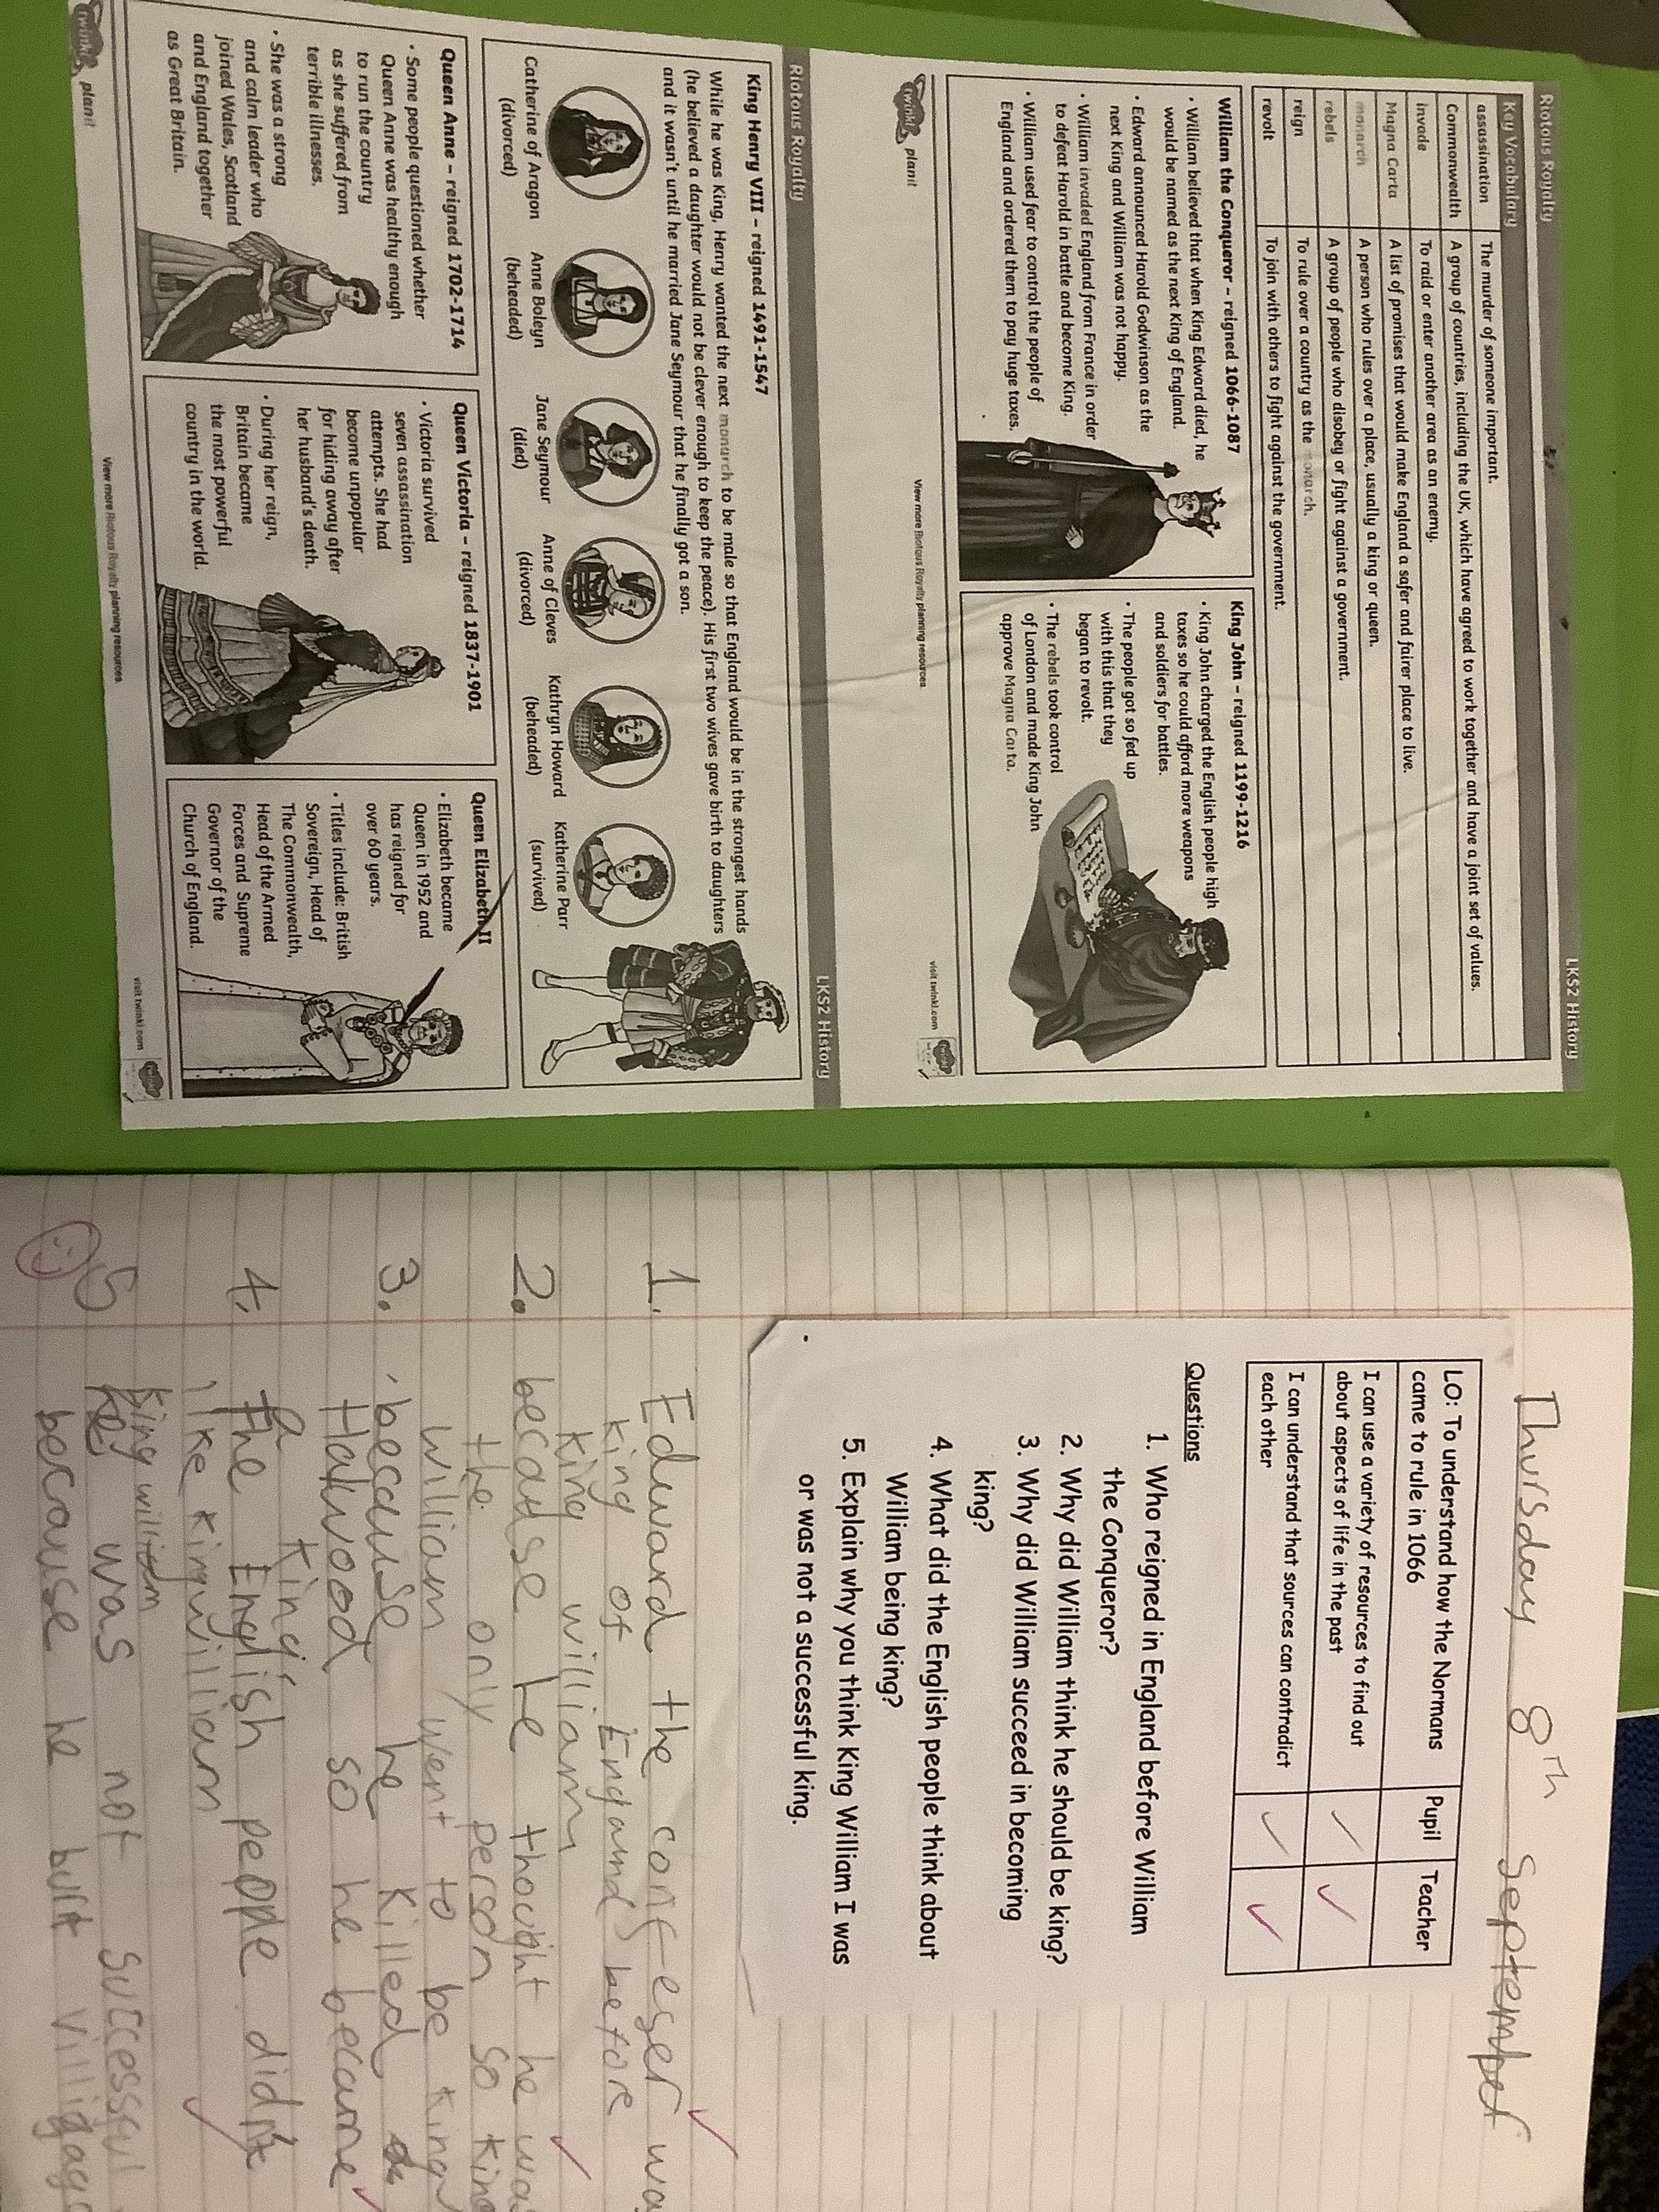 Riotous Royalty
LKS2 History
Key Vocabulary
assassination The murder of someone important.
Commonwealth A group of countries, including the UK, which have agreed to work together and have a joint set of values.
invade To raid or enter another area as an enemy.
Magna Carta A list of promises that would make England a safer and fairer place to live.
monarch A person who rules over a place, usually a king or queen.
rebels A group of people who disobey or fight against a government.
reign To rule over a country as the monarch.
revolt To join with others to fight against the government.
William the Conqueror – reigned 1066-1087
• William believed that when King Edward died, he
would be named as the next King of England.
• Edward announced Harold Godwinson as the
next King and William was not happy.
• William invaded England from France in order
to defeat Harold in battle and become King.
• William used fear to control the people of
England and ordered them to pay huge taxes.
King John – reigned 1199-1216
• King John charged the English people high
taxes so he could afford more weapons
and soldiers for battles.
• The people got so fed up
with this that they
began to revolt.
• The rebels took control
of London and made King John
approve Magna Carta.
twinkl planit
View more Riotous Royalty planning resources.
visit twinkl.com
twinkl
Riotous Royalty
LKS2 History
King Henry VIII – reigned 1491-1547
While he was King, Henry wanted the next monarch to be male so that England would be in the strongest hands
(he believed a daughter would not be clever enough to keep the peace). His first two wives gave birth to daughters
and it wasn't until he married Jane Seymour that he finally got a son.
Catherine of Aragon
(divorced)
Anne Boleyn
(beheaded)
Jane Seymour
(died)
Anne of Cleves
(divorced)
Kathryn Howard
(beheaded)
Katherine Parr
(survived)
Queen Anne – reigned 1702-1714
• Some people questioned whether
Queen Anne was healthy enough
to run the country
as she suffered from
terrible illnesses.
• She was a strong
and calm leader who
joined Wales, Scotland
and England together
as Great Britain.
Queen Victoria – reigned 1837-1901
• Victoria survived
seven assassination
attempts. She had
become unpopular
for hiding away after
her husband's death.
• During her reign,
Britain became
the most powerful
country in the world.
Queen Elizabeth II
• Elizabeth became
Queen in 1952 and
has reigned for
over 60 years.
• Titles include: British
Sovereign, Head of
The Commonwealth,
Head of the Armed
Forces and Supreme
Governor of the
Church of England.
twinkl planit
View more Riotous Royalty planning resources.
visit twinkl.com
twinkl
Thursday 8th September
LO: To understand how the Normans
came to rule in 1066
Pupil
Teacher
I can use a variety of resources to find out
about aspects of life in the past
I can understand that sources can contradict
each other
Questions
1. Who reigned in England before William
the Conqueror?
2. Why did William think he should be king?
3. Why did William succeed in becoming
king?
4. What did the English people think about
William being king?
5. Explain why you think King William I was
or was not a successful king.
1. Edward the confeser
king of England before
king william
2. because he thought he
the only person so
william went to be king
3. because he killed
Hakwood so he became
a king
4. the English people didn't
like king william
king william
5 was not successul
because he burt